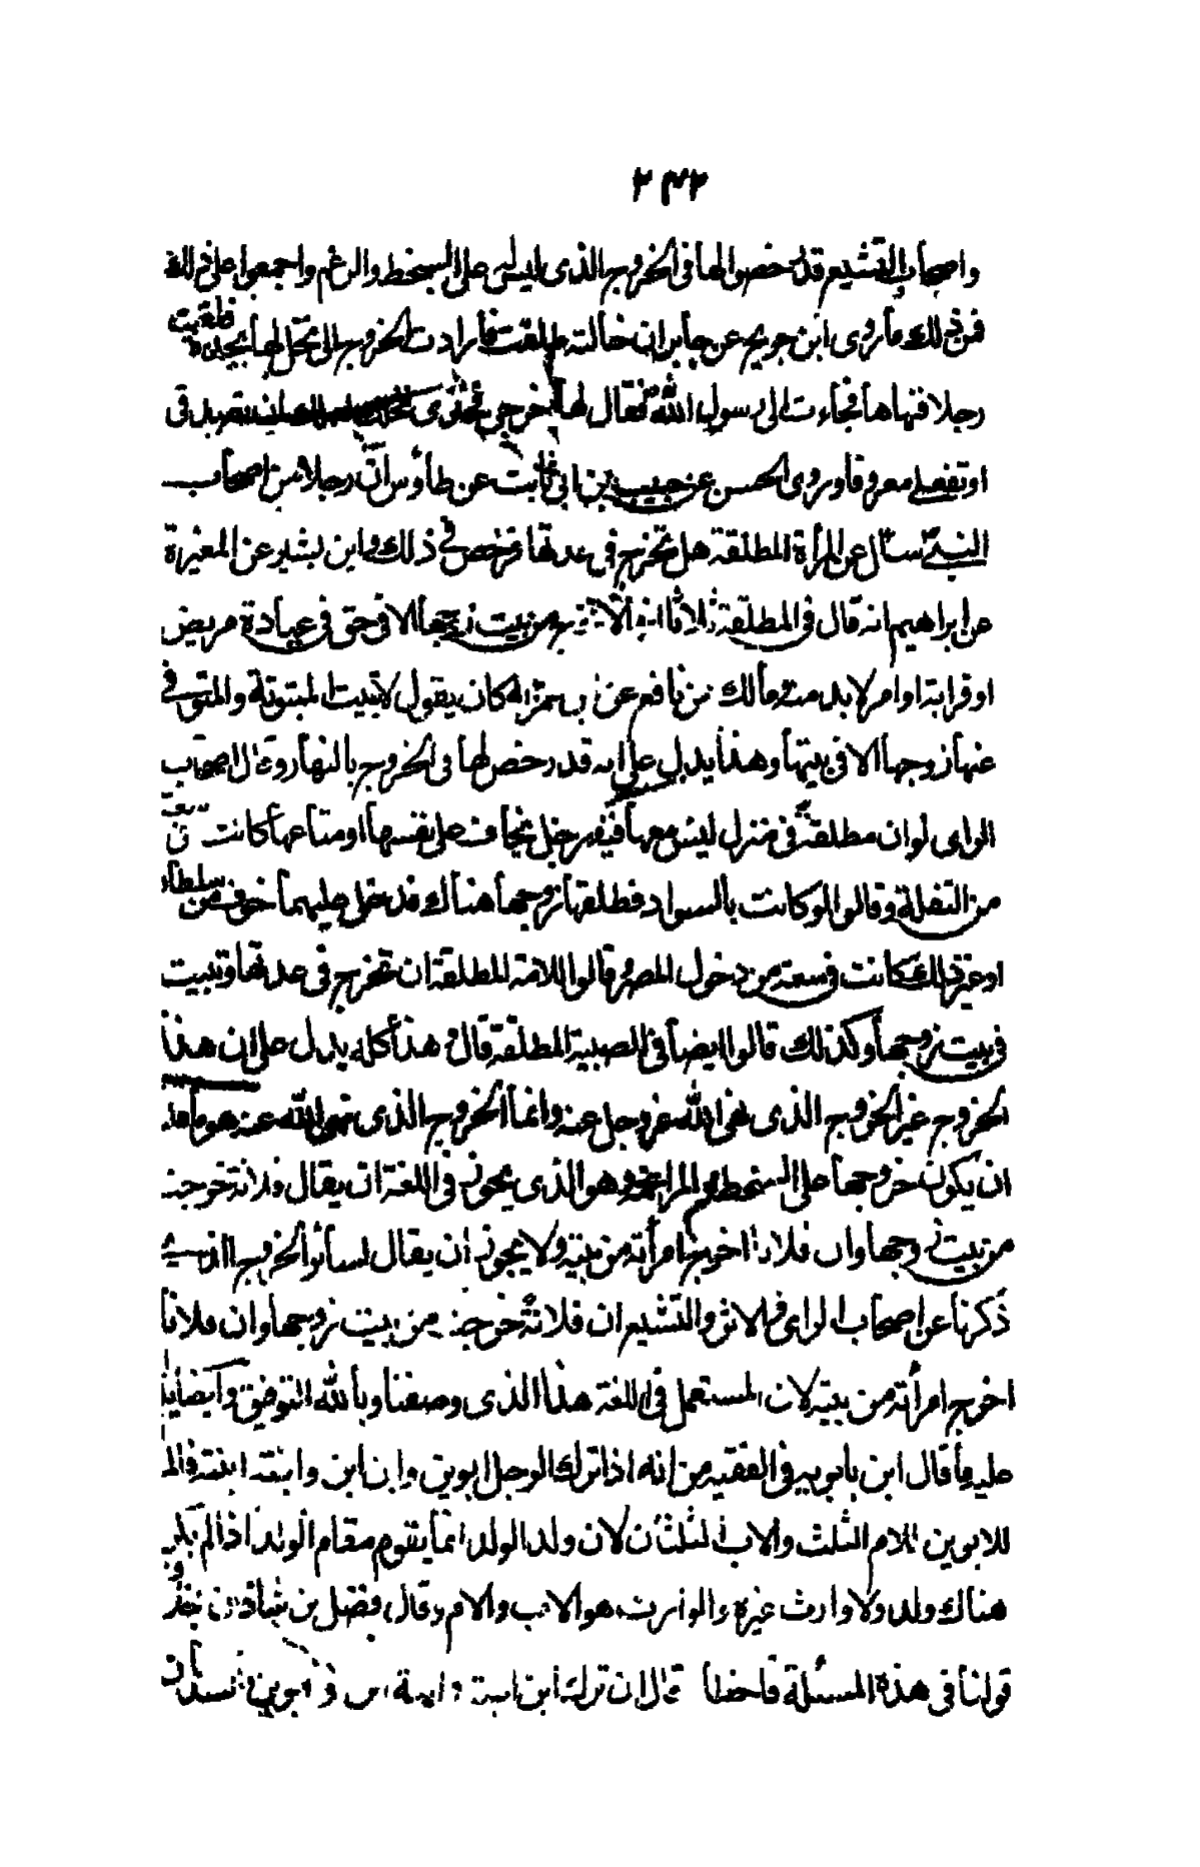 ٢٤٢
واصحاب التشيع قد رخصوا لها في الخروج الذي ليس على السخط والرغم واجمعوا على ذلك
فمن ذلك ما روى ابن جريج عن جابر ان خالته طلقت فأرادت الخروج الى نخل لها تجده فلقيت
رجلا فنهاها فجاءت الى رسول الله فقال لها اخرجي فجدى نخلك ان تصدقى
او تفعلى معروفا وروى الحسن عن حبيب بن ابى ثابت عن طاؤس ان رجلا من اصحاب
النبى سئل عن المرأة المطلقة هل تخرج فى عدتها فرخص فى ذلك وابن بشير عن المغيرة
عن ابراهيم انه قال فى المطلقة ثلاثا انها لا تخرج من بيت زوجها الا فى حق فى عيادة مريض
او قرابة او امر لا بد منه مالك عن نافع عن ابن عمر انه كان يقول لا تبيت المبتوتة والمتوفى
عنها زوجها الا فى بيتها وهذا يدل على انه قد رخص لها فى الخروج بالنهار وقال اصحاب
الراى لو ان مطلقة فى منزل ليس معها فيه رجل تخاف على نفسها او متاعها كانت فى سعة
من النقلة وقالوا لو كانت بالسواد فطلقها زوجها هناك فدخل عليهما خوف من سلطان
او غير ذلك كانت فى سعة من دخول المصر وقالوا للامة المطلقة ان تخرج فى عدتها وتبيت
فى بيت زوجها وكذلك قالوا ايضا فى الصبية المطلقة قال وهذا كله يدل على ان هذا
الخروج غير الخروج الذى نهى الله عز وجل عنه وانما الخروج الذى نهى الله عنه هو ما قلنا
ان يكون خروجها على السخط والمراغمة وهو الذى يجوز فى اللغة ان يقال فلانة خرجت
من بيت زوجها وان فلانا اخرج امرأته من بيته ولا يجوز ان يقال لسائر الخروج الذى
ذكرنا عن اصحاب الراى والاثر والتشيع ان فلانة خرجت من بيت زوجها وان فلانا
اخرج امرأته من بيته لان المستعمل فى اللغة هذا الذى وصفنا وبالله التوفيق وايضا
عليه ما قال ابن بابويه فى الفقيه من انه اذا ترك الرجل ابوين وابن ابن وابنة ابنة فالمال
للابوين للام الثلث وللاب الثلثان لان ولد الولد انما يقوم مقام الولد اذا لم يكن
هناك ولد ولا وارث غيره والوارث هو الاب والام وقال فضل بن شاذان خلاف
قولنا فى هذه المسئلة فاخطأ قال ان ترك ابن ابنة وابنة ابن وابوين